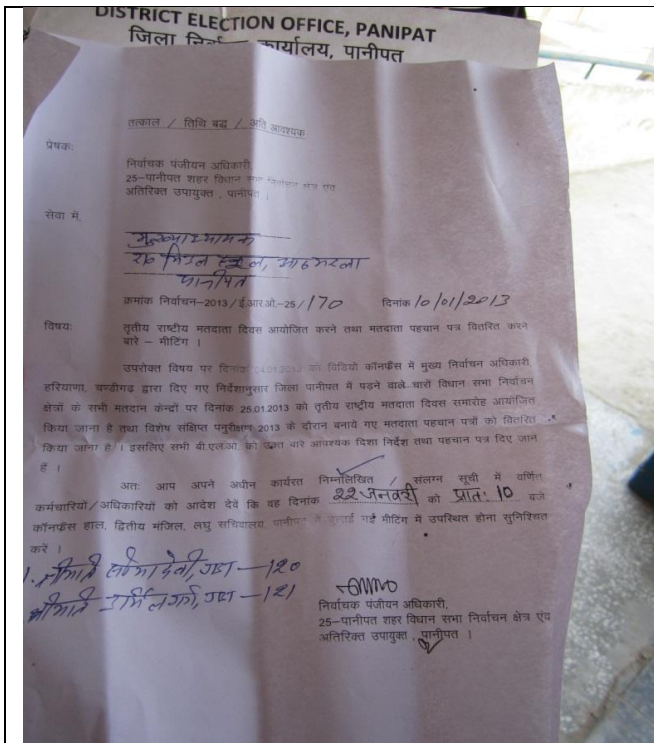 DISTRICT ELECTION OFFICE, PANIPAT
जिला कार्यालय, पानीपत
तत्काल / तिथि बद्ध / अति आवश्यक
प्रेषकः
निर्वाचक पंजीयन अधिकारी,
25–पानीपत शहर विधान सभा निर्वाचन क्षेत्र एवं
अतिरिक्त उपायुक्त , पानीपत ।
सेवा में,
मुख्याध्यापक
रा० मिडल स्कूल,
पानीपत
क्रमांक निर्वाचन–2013 / ई.आर.ओ.–25 / 170 दिनांक 10/01/2013
विषयः तृतीय राष्ट्रीय मतदाता दिवस आयोजित करने तथा मतदाता पहचान पत्र वितरित करने
बारे – मीटिंग ।
उपरोक्त विषय पर दिनांक 04.01.2013 को विडियो कॉनफ्रैंस में मुख्य निर्वाचन अधिकारी
हरियाणा, चण्डीगढ द्वारा दिए गए निर्देशानुसार जिला पानीपत में पड़ने वाले चारों विधान सभा निर्वाचन
क्षेत्रों के सभी मतदान केन्द्रों पर दिनांक 25.01.2013 को तृतीय राष्ट्रीय मतदाता दिवस समारोह आयोजित
किया जाना है तथा विशेष संक्षिप्त पनुरीक्षण 2013 के दौरान बनाये गए मतदाता पहचान पत्रों को वितरित
किया जाना है । इसलिए सभी बी.एल.ओ. को उक्त बारे आवश्यक दिशा निर्देश तथा पहचान पत्र दिए जान
हैं ।
अतः आप अपने अधीन कार्यरत निम्नलिखित / संलग्न सूची में वर्णित
कर्मचारियों/अधिकारियों को आदेश देवें कि वह दिनांक 22 जनवरी को प्रातः 10 बजे
कॉनफ्रैंस हाल, द्वितीय मंजिल, लघु सचिवालय, पानीपत में बुलाई गई मीटिंग में उपस्थित होना सुनिश्चित
करें ।
1. श्रीमति देवी, –120
श्रीमति –121
निर्वाचक पंजीयन अधिकारी,
25–पानीपत शहर विधान सभा निर्वाचन क्षेत्र एंव
अतिरिक्त उपायुक्त , पानीपत ।